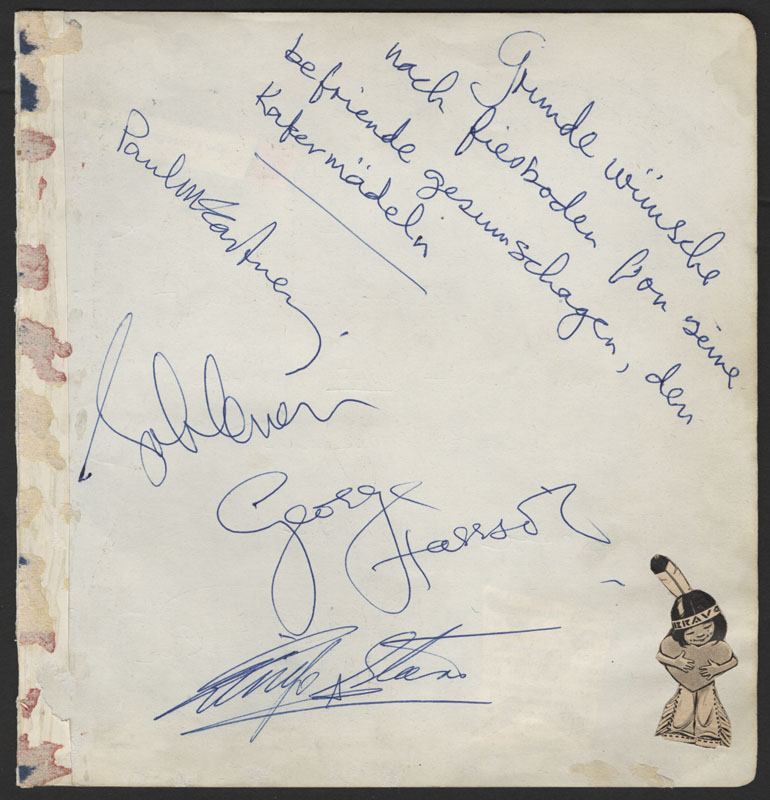 Grunde wünsche
nach fiesboden von seine
befriende gesumschagen, den
Katermädeln
Paul McCartney
John Lennon
George Harrison
Ringo Starr
BRAVO